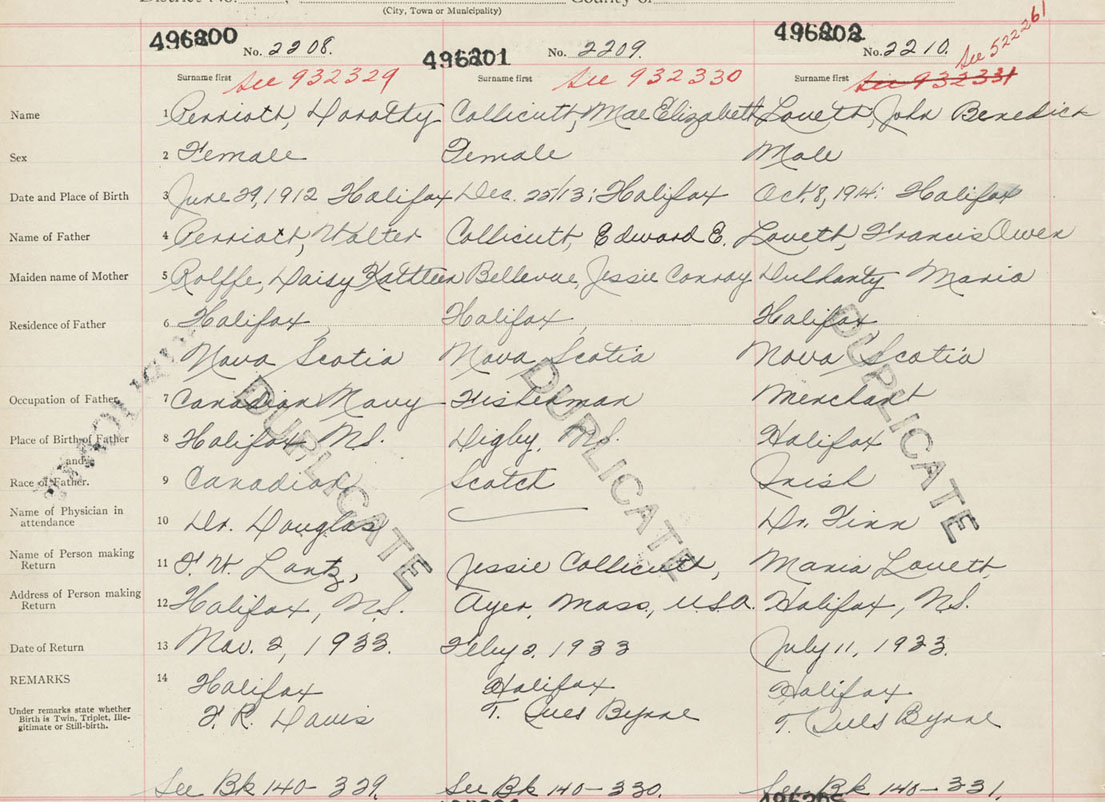 (City, Town or Municipality)
496800 No. 2208. 496801 No. 2209. 496802 No. 2210. See 522261
Surname first See 932329 Surname first See 932330 Surname first See 932331
Name 1 Perriott, Dorothy Collicutt, Mae Elizabeth Lovett, John Benedict
Sex 2 Female Female Male
Date and Place of Birth 3 June 29, 1912 Halifax Dec. 25/13; Halifax Oct. 8, 1914: Halifax
Name of Father 4 Perriott, Walter Collicutt, Edward E. Lovett, Francis Owen
Maiden name of Mother 5 Rolffe, Daisy Kathleen Bellevue, Jessie Conroy Dulhanty Maria
Residence of Father 6 Halifax Halifax Halifax
Nova Scotia Nova Scotia Nova Scotia
Occupation of Father 7 Canadian Navy Fisherman Merchant
Place of Birth of Father 8 Halifax N.S. Digby, N.S. Halifax
and
Race of Father. 9 Canadian Scotch Irish
Name of Physician in
attendance 10 Dr. Douglas Dr. Finn
Name of Person making
Return 11 F. W. Lantz, Jessie Collicutt, Maria Lovett
Address of Person making
Return 12 Halifax, N.S. Ayer, Mass, U.S.A. Halifax, N.S.
Date of Return 13 Nov. 2, 1933. Feby 2, 1933 July 11, 1933.
REMARKS 14 Halifax Halifax Halifax
Under remarks state whether
Birth is Twin, Triplet, Ille-
gitimate or Still-birth.
F. R. Davis T. Ives Byrne T. Ives Byrne
See Bk 140-329. See Bk 140-330. See Bk 140-331.
DUPLICATE DUPLICATE DUPLICATE